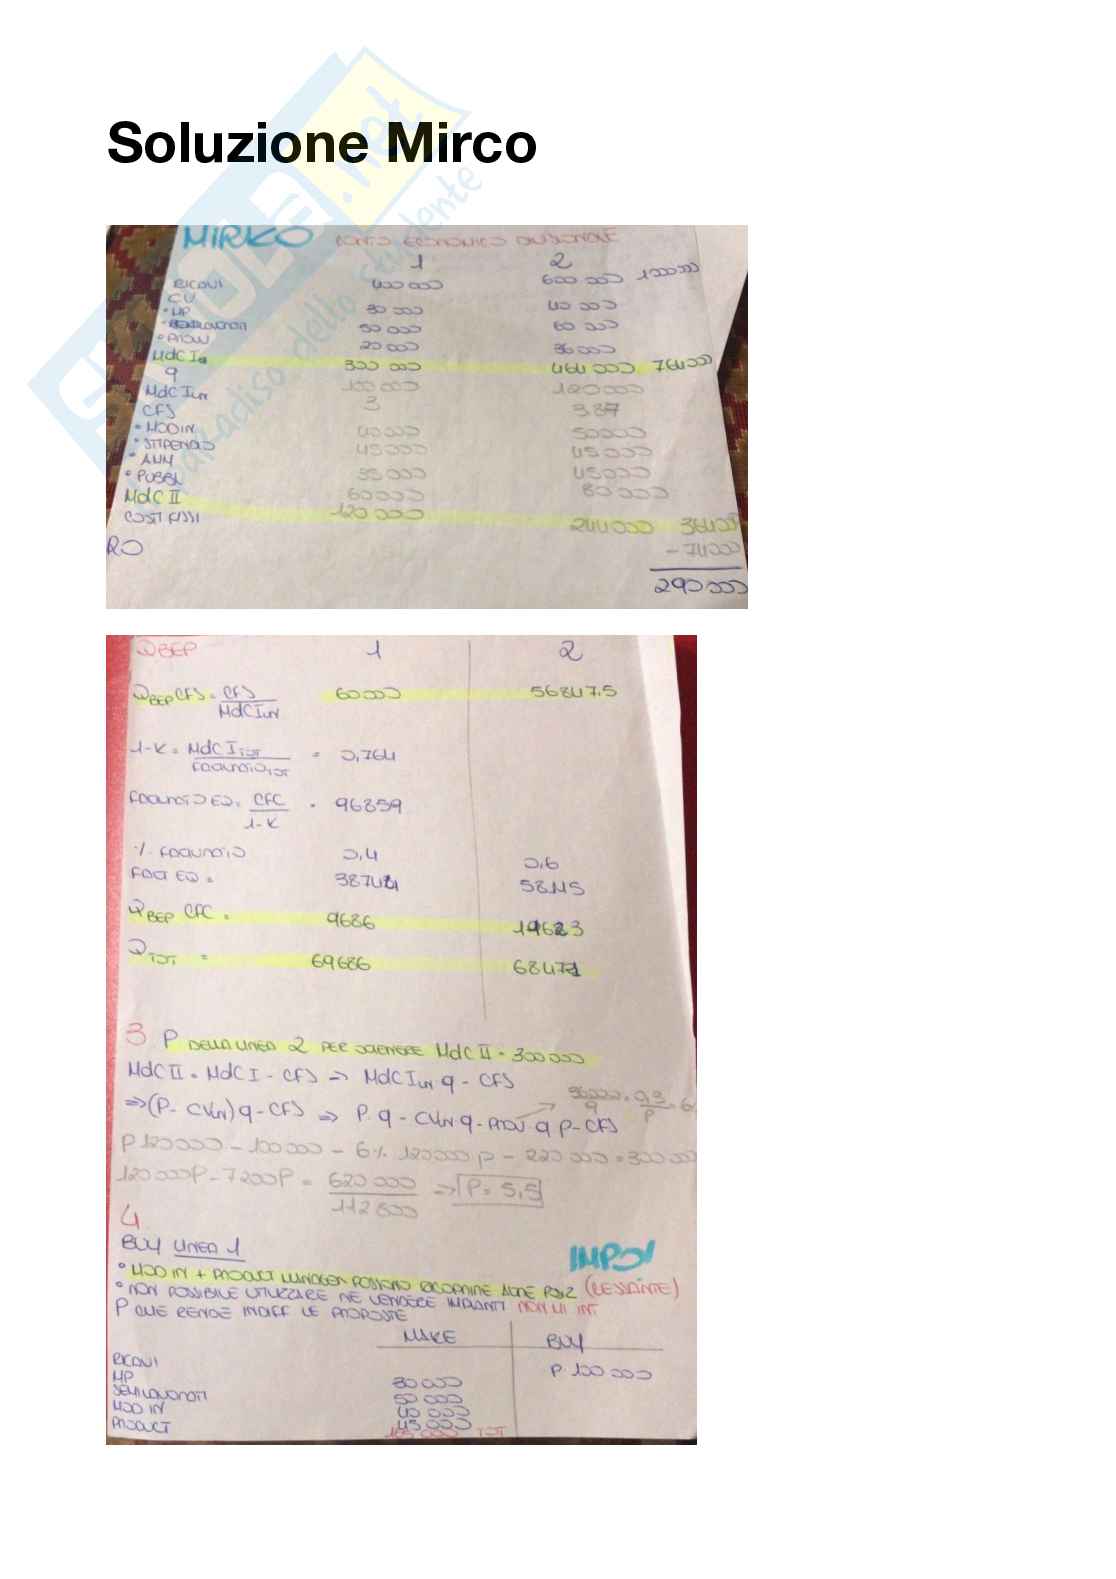 Soluzione Mirco
SKUOLA.net
paradiso dello studente
MIRKO CONTO ECONOMICO DIVISIONALE
1 2
RICAVI 400 000 600 000 1000000
CV
• MP 30 000 40 000
• SEMILAVORATI 50 000 60 000
• PROVV 20 000 36000
MdC I 300 000 464 000 764000
q 100 000 120000
MdC Iun 3 3.87
CFS
• MOD IN 40000 50000
• STIPENDIO 45000 45000
• AMM 35000 45000
• PUBBL 60000 80000
MdC II 120000 244000 364000
COSTI FISSI -74000
RO 290 000
QBEP 1 2
QBEP CFS = CFS / MdC Iun 60000 56847.5
1-K = MdC I TOT / FATTURATO TOT = 0,764
FATTURATO EQ = CFC / 1-K = 96859
% FATTURATO 0,4 0,6
FATT EQ = 38744 58115
QBEP CFC = 9686 11623
QTOT = 69686 68471
3 P DELLA LINEA 2 PER OTTENERE MdC II = 300 000
MdC II = MdC I - CFS => MdC Iun q - CFS
=> (P - CVun) q - CFS => P q - CVun q - PROV q P - CFS
P 120000 - 100 000 - 6% 120000 P - 220 000 = 300 000
120 000P - 7200P = 620 000 / 112 800 => P = 5,5
4
BUY LINEA 1 IMPO!
• MOD IN + PRODUCT MANAGER POSSONO RICOPRIRE ALTRE POS. (CESSANTE)
• NON POSSIBILE UTILIZZARE NE VENDERE IMPIANTI NON MI INT
P CHE RENDE INDIFF LE PROPOSTE
MAKE BUY
RICAVI P 100 000
MP 30 000
SEMILAVORATI 50 000
MOD IN 40 000
PRODUCT 45 000
165 000 TOT